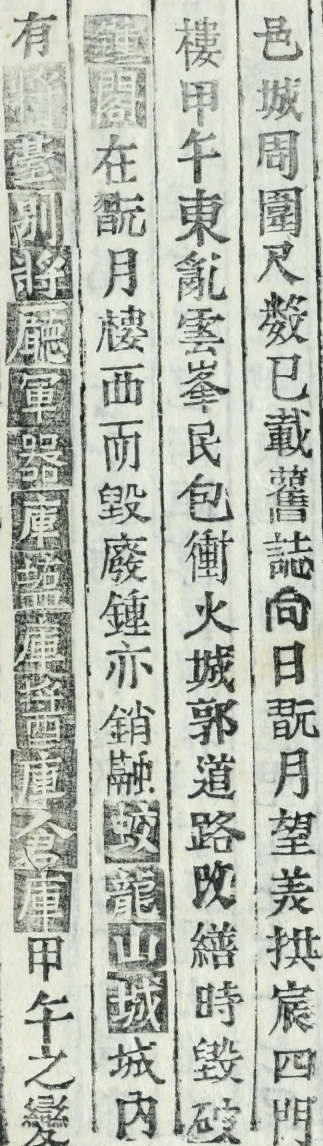 邑城周圍尺數已載舊誌向日翫月望美拱宸四門
樓甲午東亂雲峯民包衝火城郭道路改繕時毀破
鍾閣在翫月樓西而毀廢鍾亦銷融蛟龍山城城內
有將臺別將廳軍器庫鹽庫醬庫倉庫甲午之變